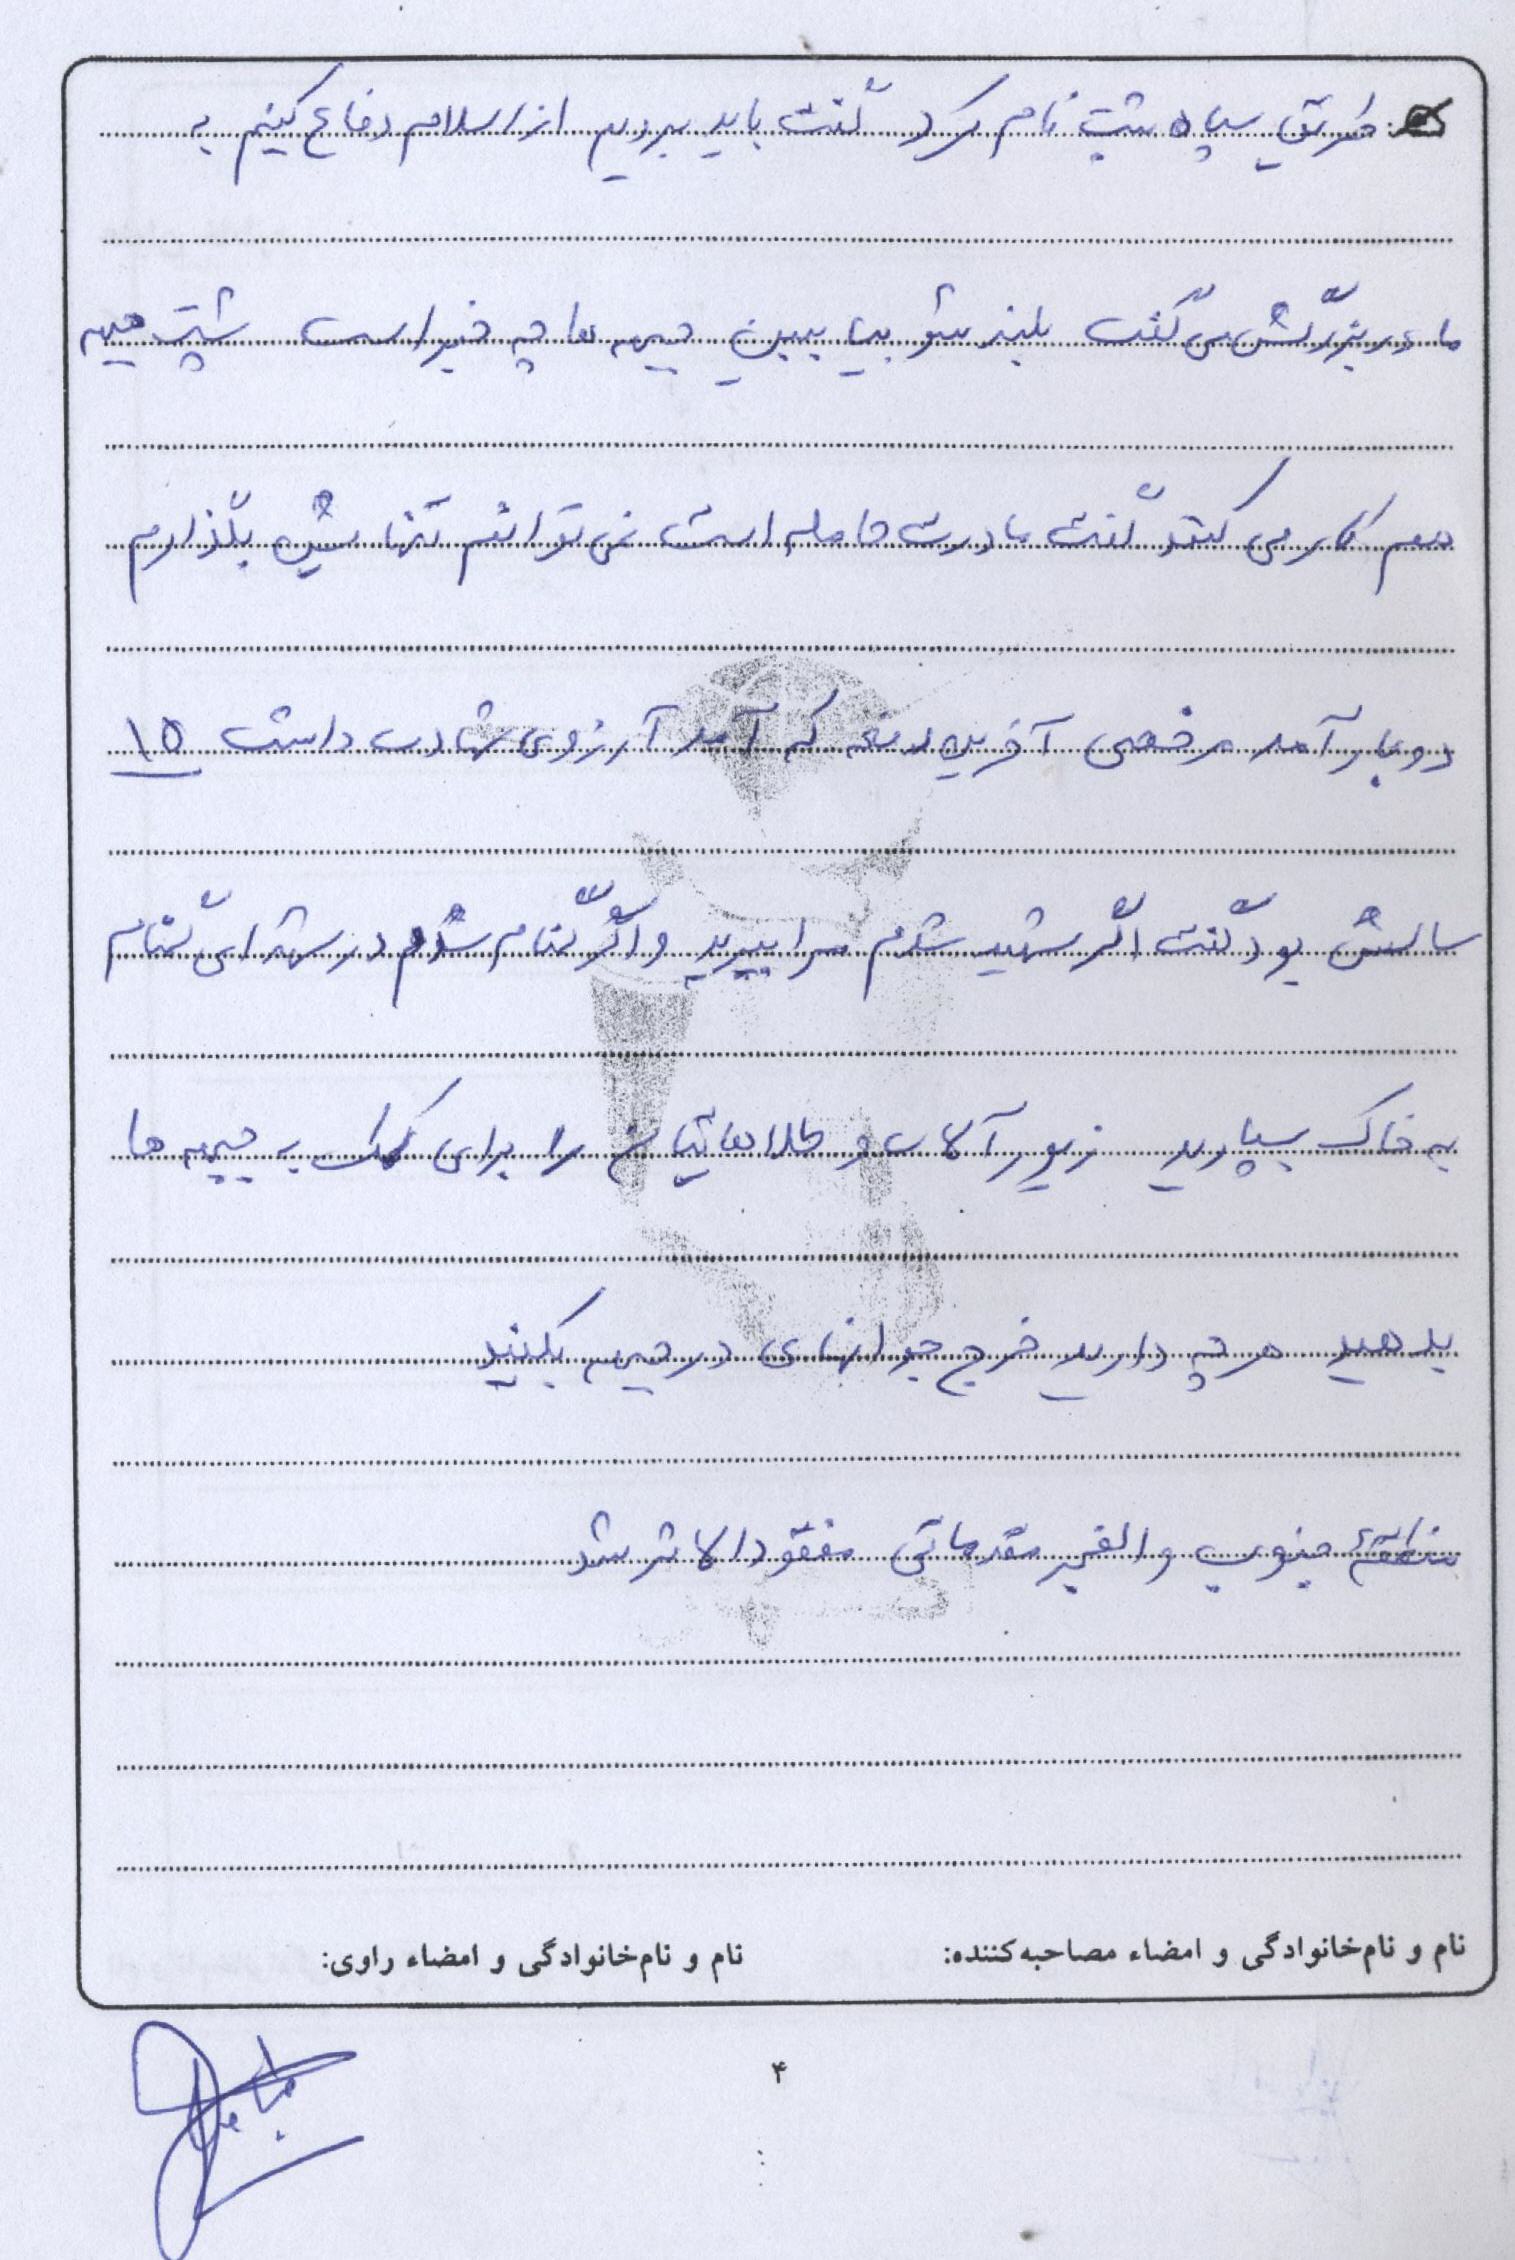 طریق سپاه ثبت نام کرد گفت باید برویم از اسلام دفاع کنیم به
مادربزرگش می گفت بلند شو بیا ببین جبهه ها چه خبر است پشت جبهه
هم کار می کنند گفت مادرت حامله است نمی توانم تنهایش بگذارم
دوبار آمد مرخصی آخرین دفعه که آمد آرزوی شهادت داشت ۱۵
سالش بود گفت اگر شهید شدم مرا ببرید و اگر گمنام شدم در شهدای گمنام
به خاک بسپارید زیورآلات و طلاهایتان را برای کمک به جبهه ها
بدهید هر چه دارید خرج جوانهای در جبهه بکنید
منطقهٔ جنوب والفجر مقدماتی مفقودالاثر شد
نام و نام‌خانوادگی و امضاء مصاحبه‌کننده: نام و نام‌خانوادگی و امضاء راوی:
۴